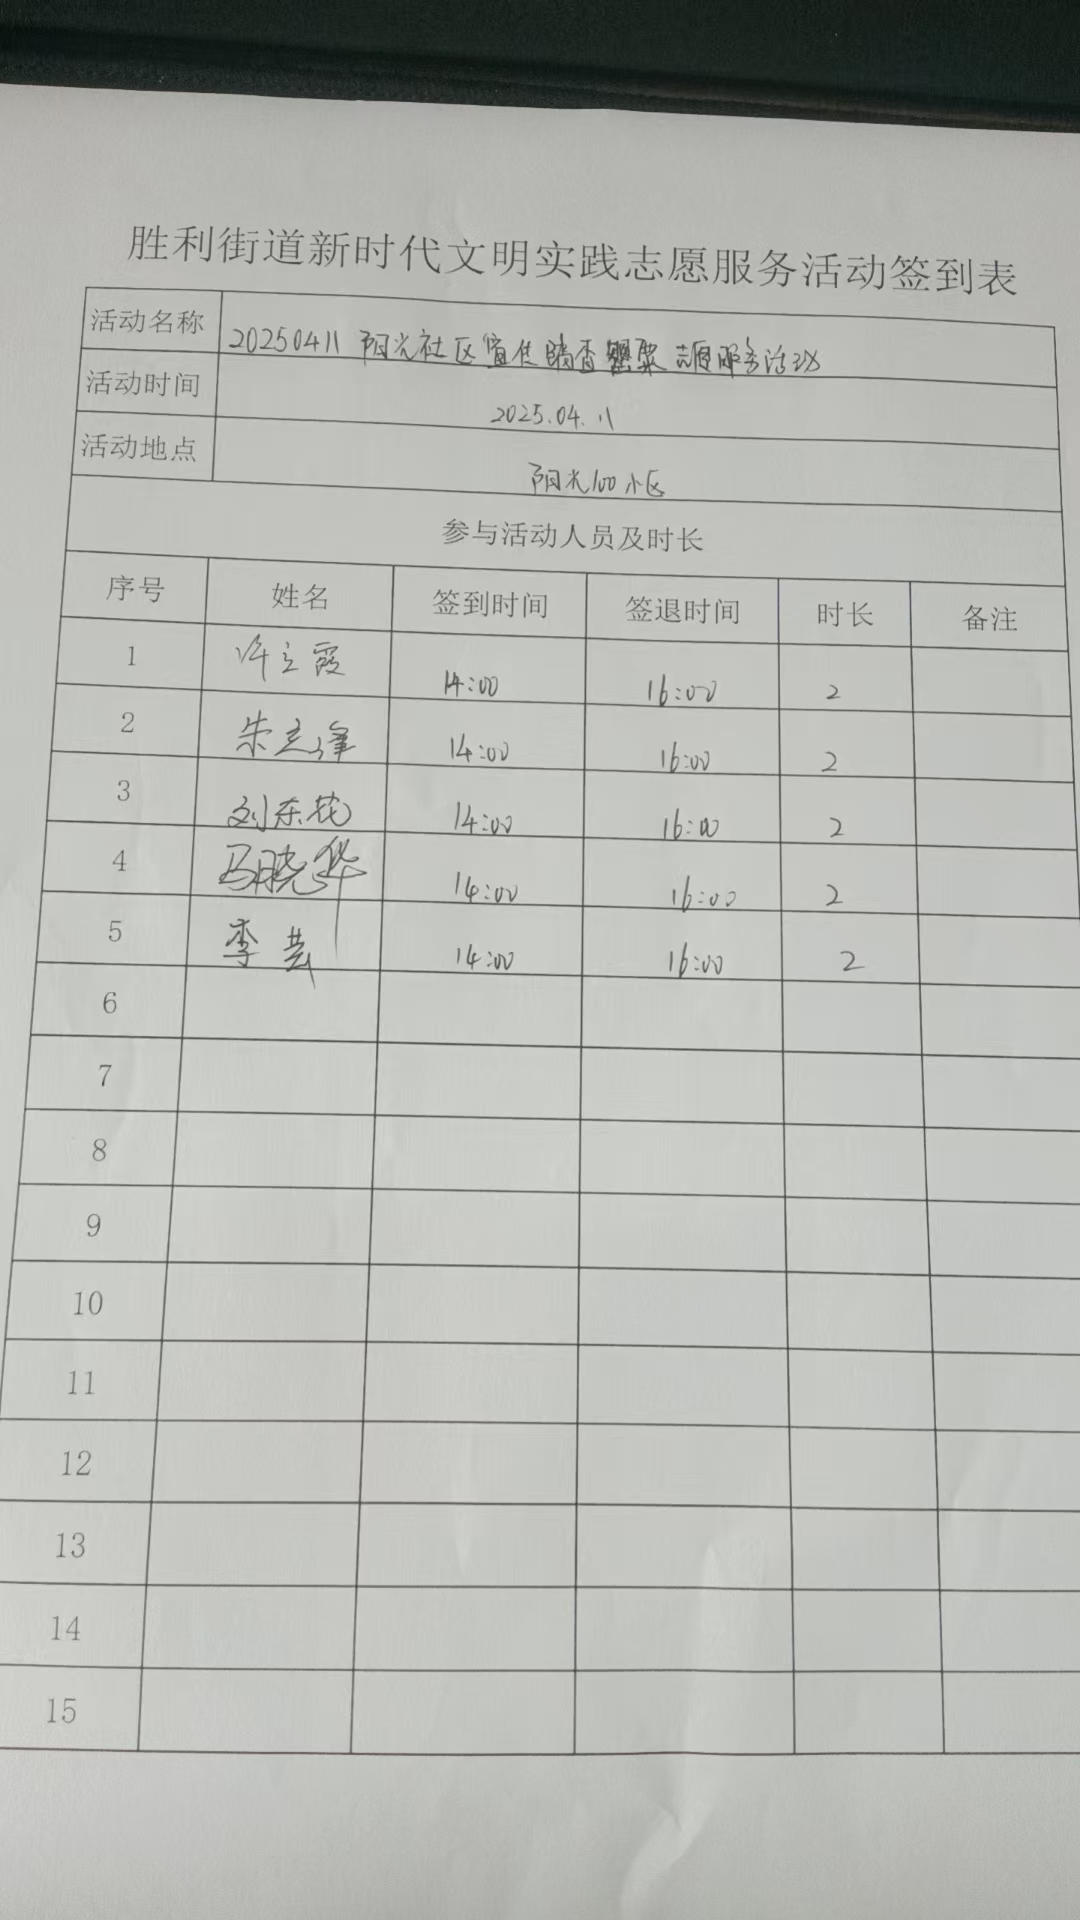 胜利街道新时代文明实践志愿服务活动签到表
活动名称 20250411 阳光社区宣传踏查罂粟志愿服务活动
活动时间 2025.04.11
活动地点 阳光100小区
参与活动人员及时长
序号 姓名 签到时间 签退时间 时长 备注
1 许立霞 14:00 16:00 2
2 朱志峰 14:00 16:00 2
3 刘东花 14:00 16:00 2
4 马晓华 14:00 16:00 2
5 李芸 14:00 16:00 2
6
7
8
9
10
11
12
13
14
15